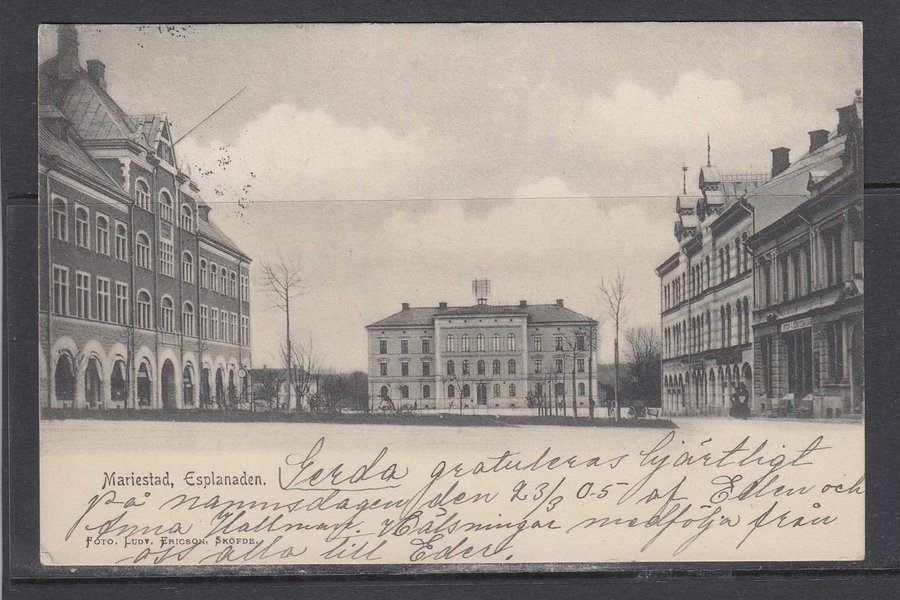 Mariestad, Esplanaden.
Gerda gratuleras hjärtligt
på namnsdagen den 23/3 05 af Ellen och
Anna Hallman. Hälsningar medfölja från
Foto. Ludv. Ericson, Sköfde.
oss alla till Eder.